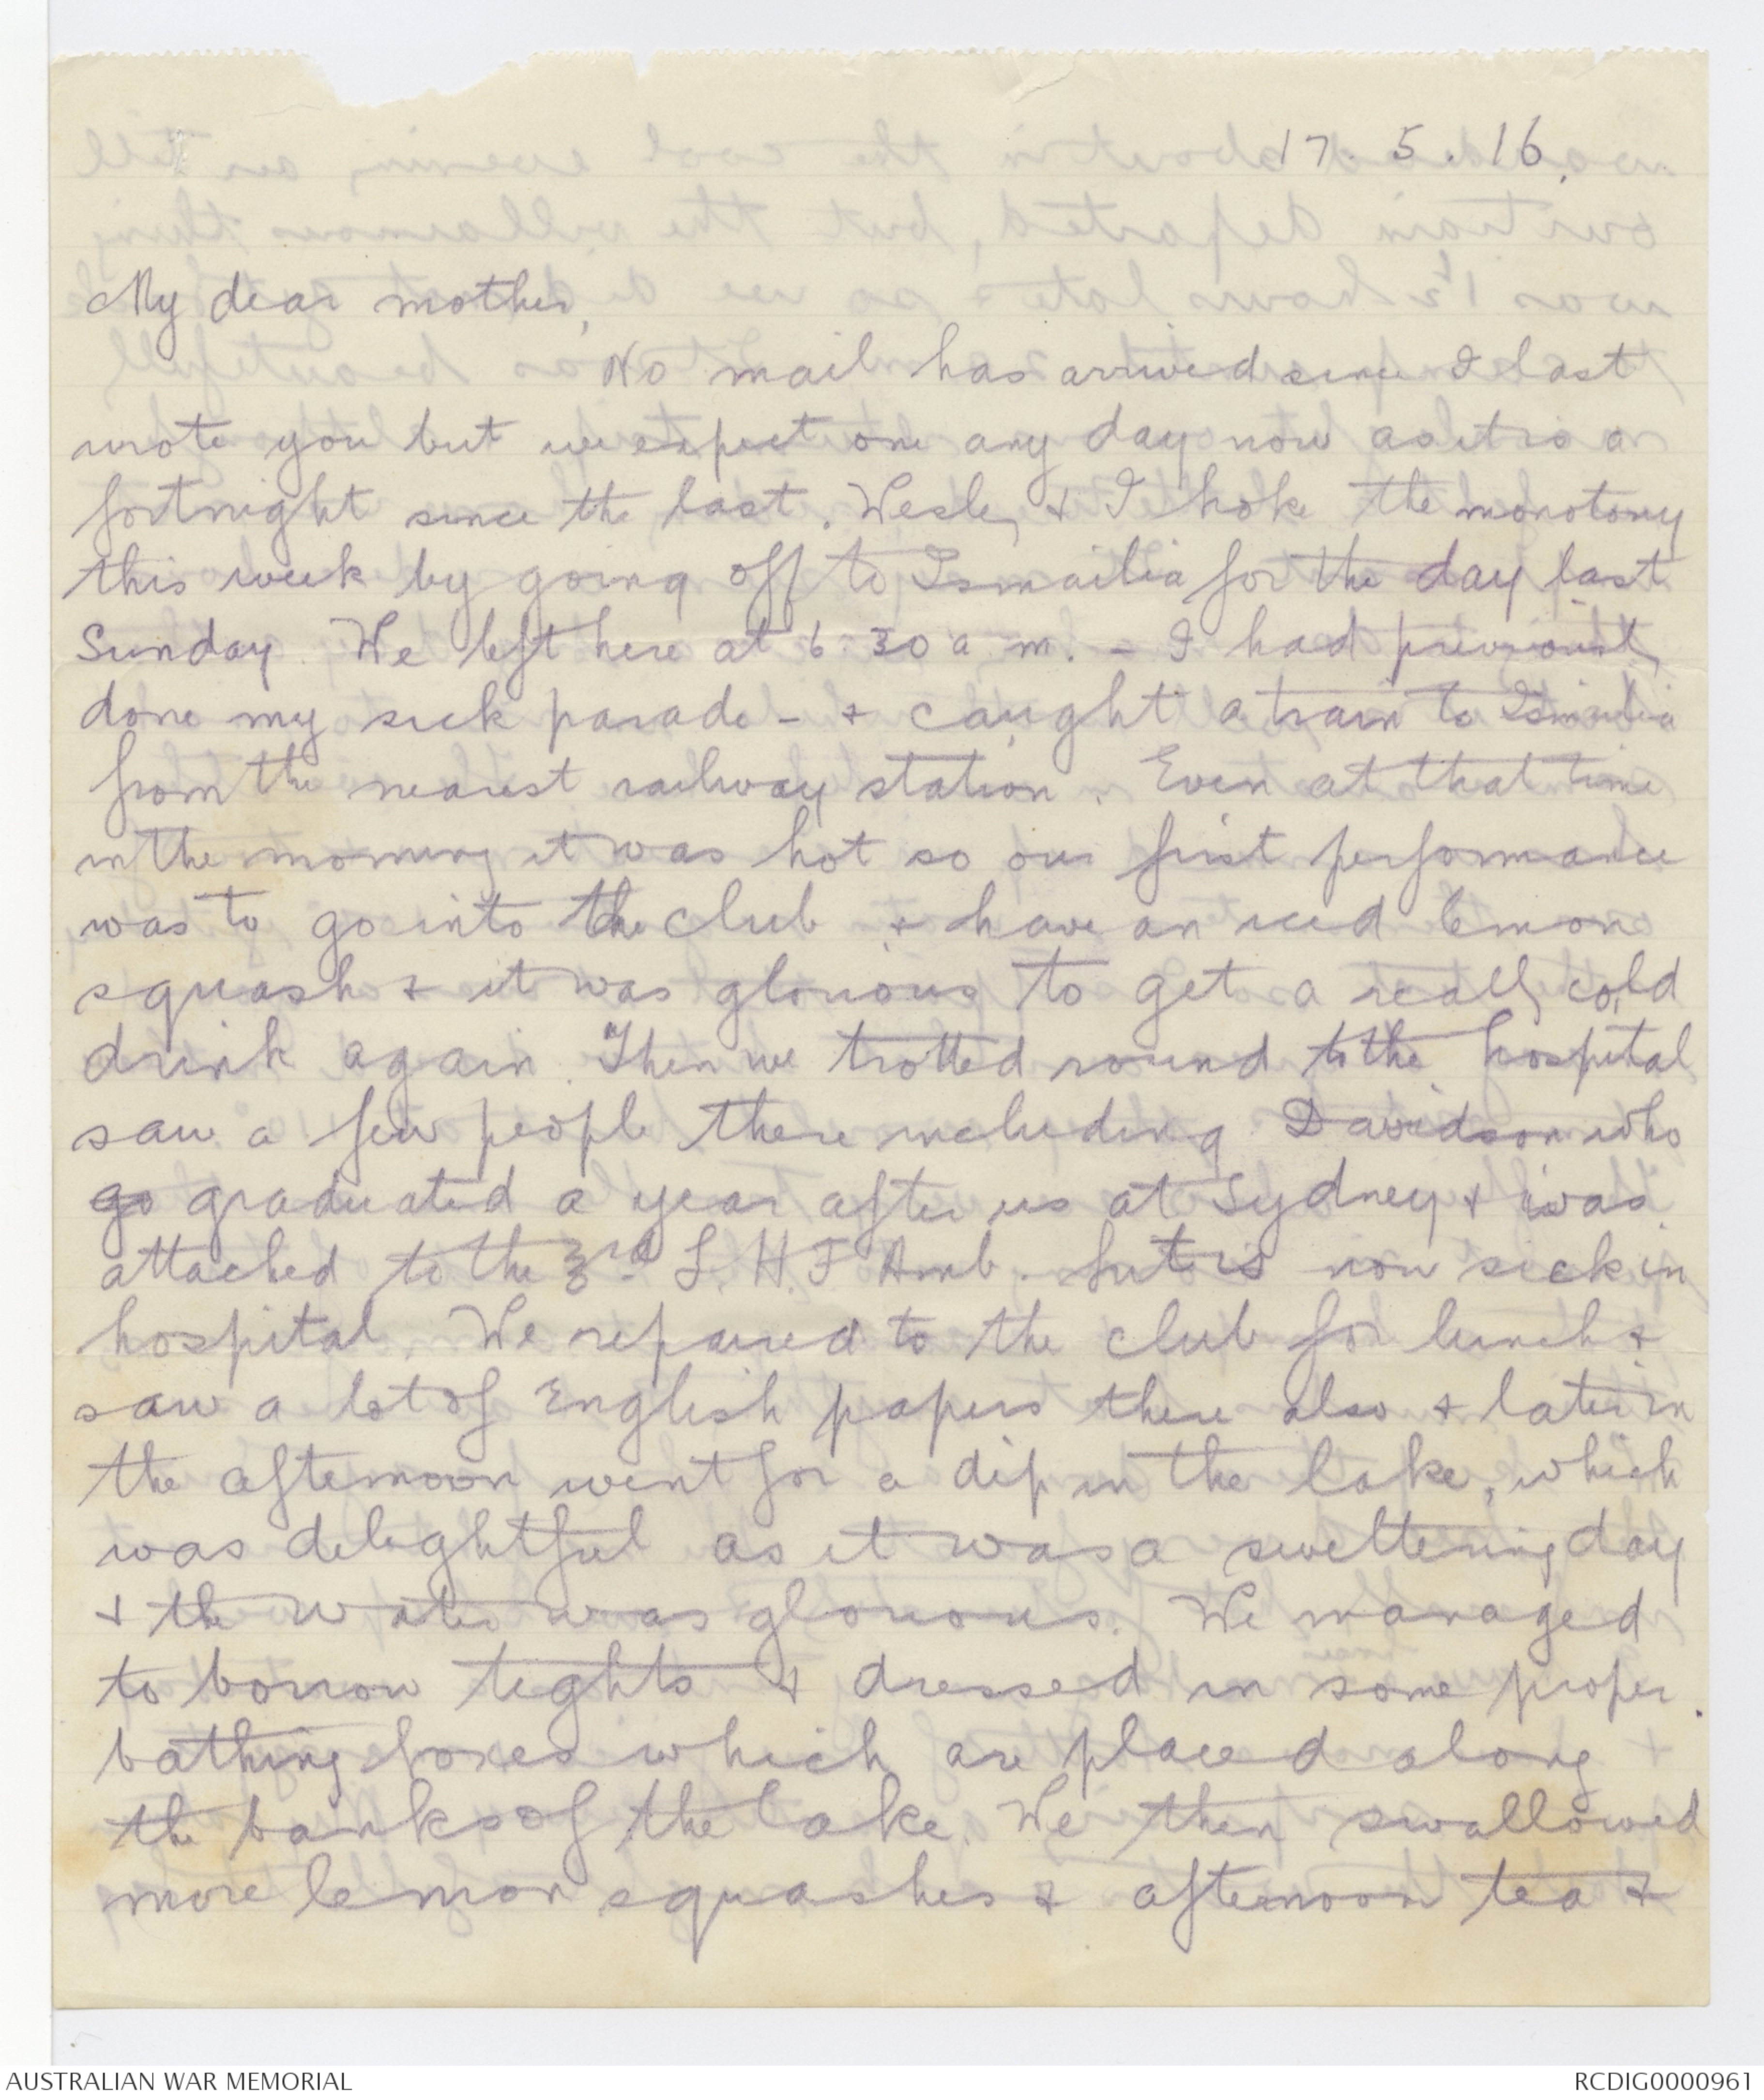 17. 5. 16.
My dear mother,
No mail has arrived since I last
wrote you but we expect one any day now as it is a
fortnight since the last. Wesley & I broke the monotony
this week by going off to Ismailia for the day last
Sunday. We left here at 6.30 a.m. - I had previously
done my sick parade - & caught a train to Ismailia
from the nearest railway station. Even at that time
in the morning it was hot so our first performance
was to go into the club & have an iced lemon
squash & it was glorious to get a really cold
drink again. Then we trotted round to the hospital
saw a few people there including Davidson who
go graduated a year after us at Sydney & was
attached to the 3rd L. H. F Amb. but is now sick in
hospital. We repaired to the club for lunch &
saw a lot of English papers there also & later in
the afternoon went for a dip in the lake, which
was delightful as it was a sweltering day
& the water was glorious. We managed
to borrow tights & dressed in some proper
bathing boxes which are placed along
the banks of the lake. We then swallowed
more lemon squashes & afternoon tea &
AUSTRALIAN WAR MEMORIAL
RCDIG0000961